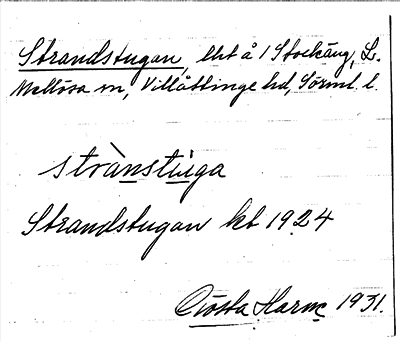 Strandstugan, lht å 1 Stockäng, L.
Mellösa sn, Villåttinge hd, Sörml. l.
strànstùga
Strandstugan kt 1924
Gösta Harm 1931.